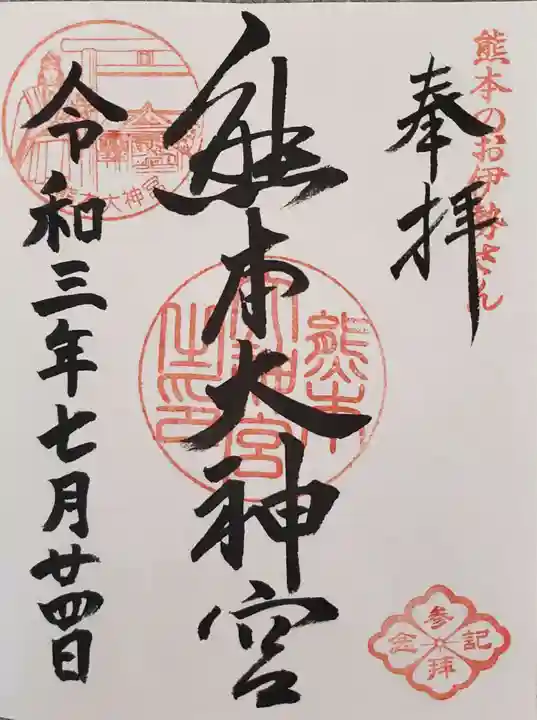 熊本のお伊勢さん
奉拝
熊本大神宮
熊本
大神宮
之印
令和三年七月廿四日
熊本大神宮
参拝記念